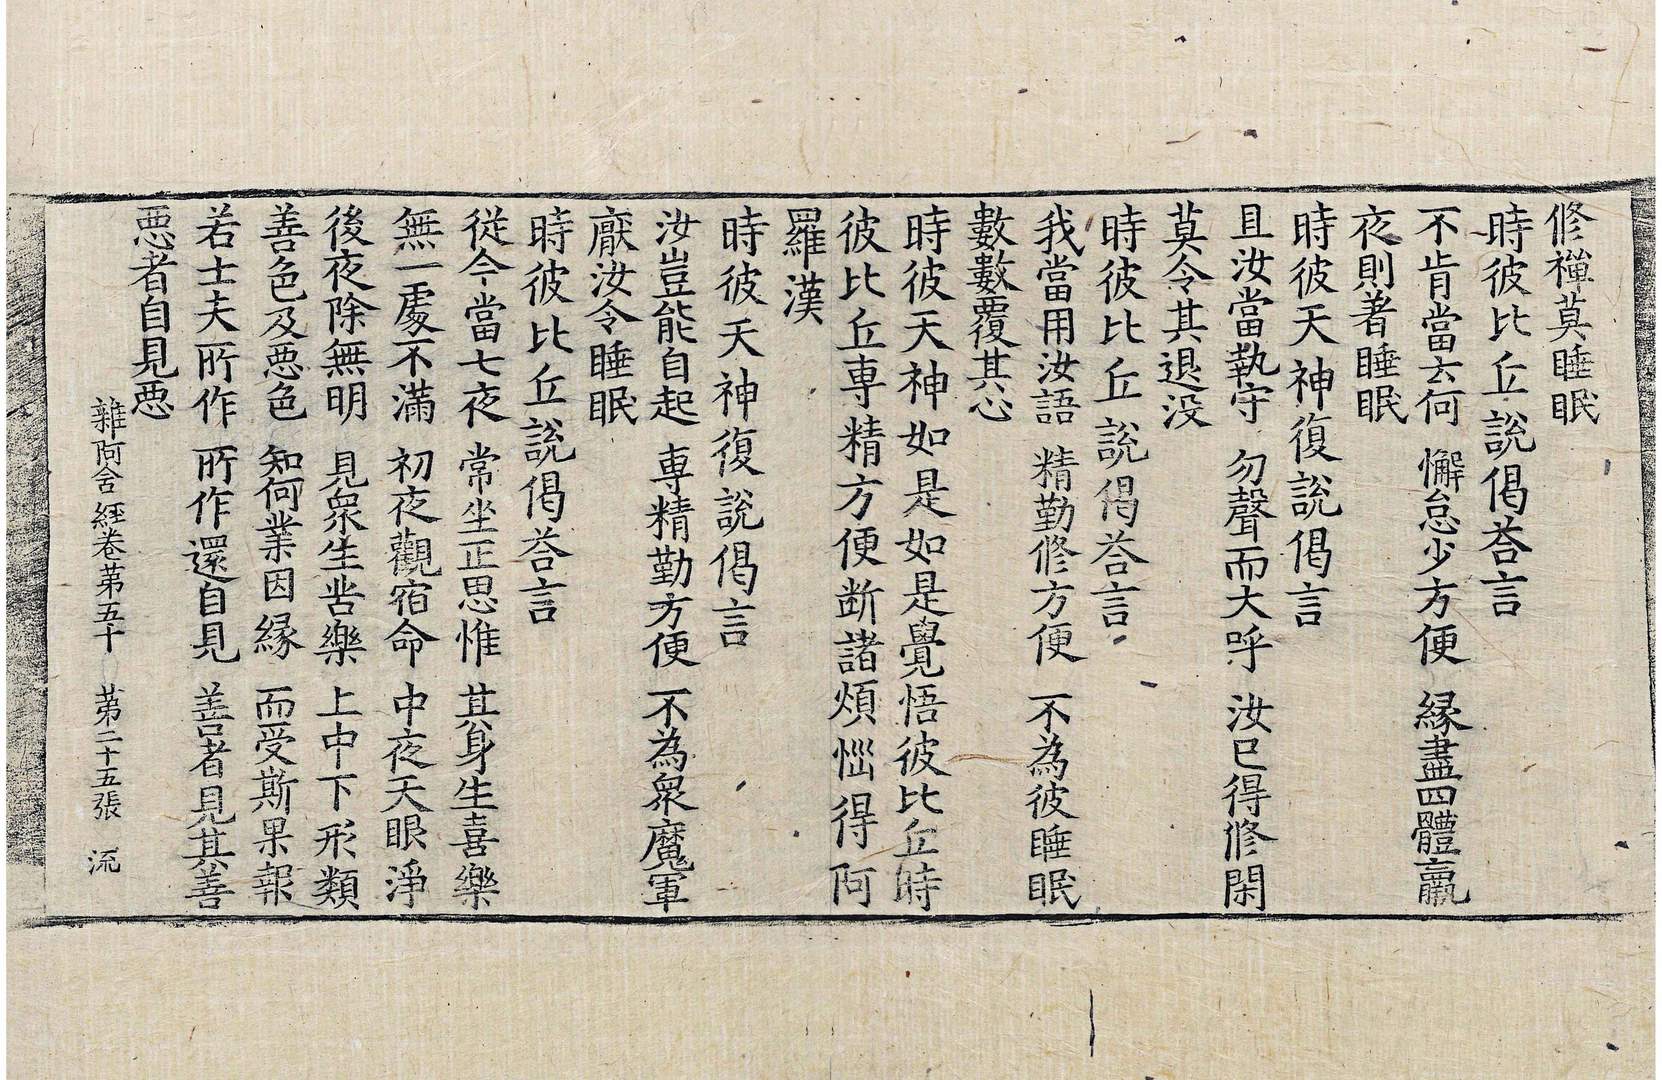 修禪莫睡眠
時彼比丘說偈荅言
不肯當云何　懈怠少方便　緣盡四體羸
夜則著睡眠
時彼天神復說偈言
且汝當執守　勿聲而大呼　汝已得修閑
莫令其退没
時彼比丘說偈荅言
我當用汝語　精勤修方便　不為彼睡眠
數數覆其心
時彼天神如是如是覺悟彼比丘時
彼比丘専精方便断諸煩惱得阿
羅漢
時彼天神復說偈言
汝豈能自起　専精勤方便　不為衆魔軍
厭汝令睡眠
時彼比丘說偈荅言
從今當七夜　常坐正思惟　其身生喜樂
無一處不滿　初夜觀宿命　中夜天眼淨
後夜除無明　見衆生苦樂　上中下形類
善色及惡色　知何業因緣　而受斯果報
若士夫所作　所作還自見　善者見其善
惡者自見惡
雜阿含經卷苐五十　苐二十五張　流